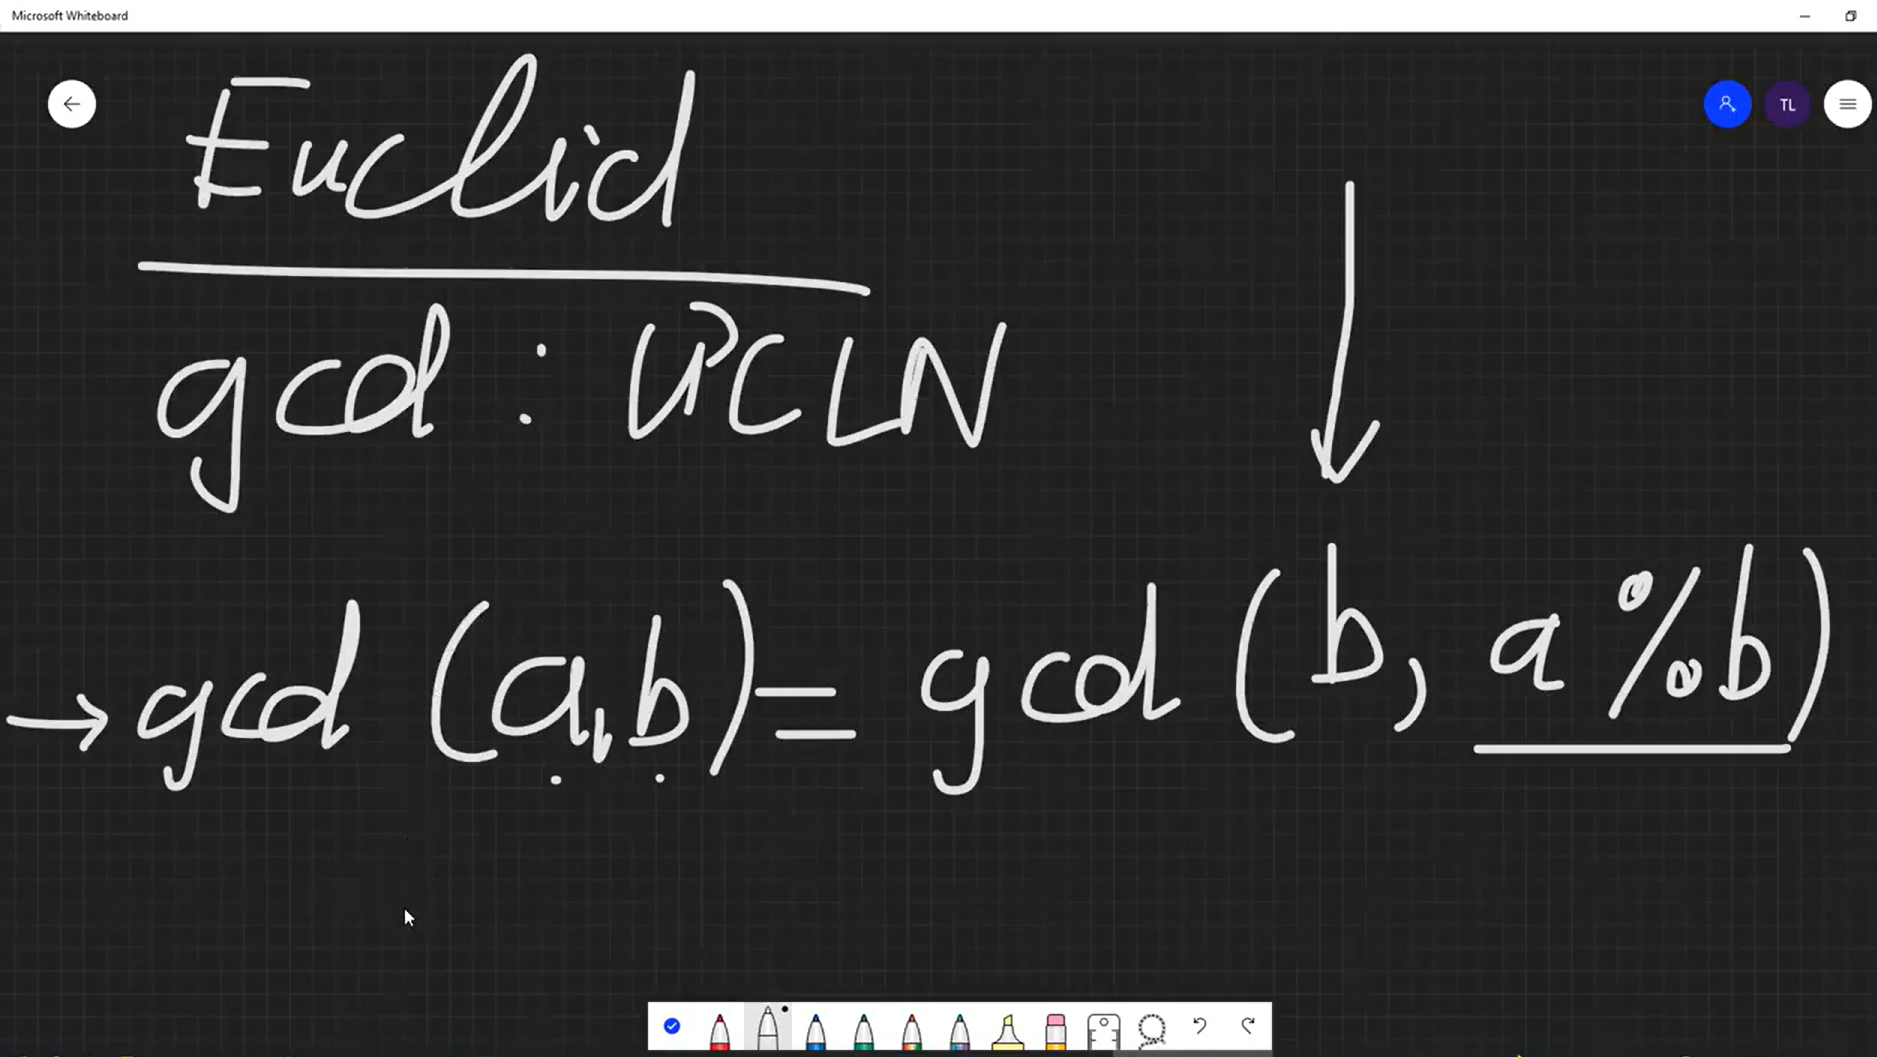 Microsoft Whiteboard
TL
Euclid
gcd : ƯCLN
→ gcd (a,b) = gcd (b, a % b)